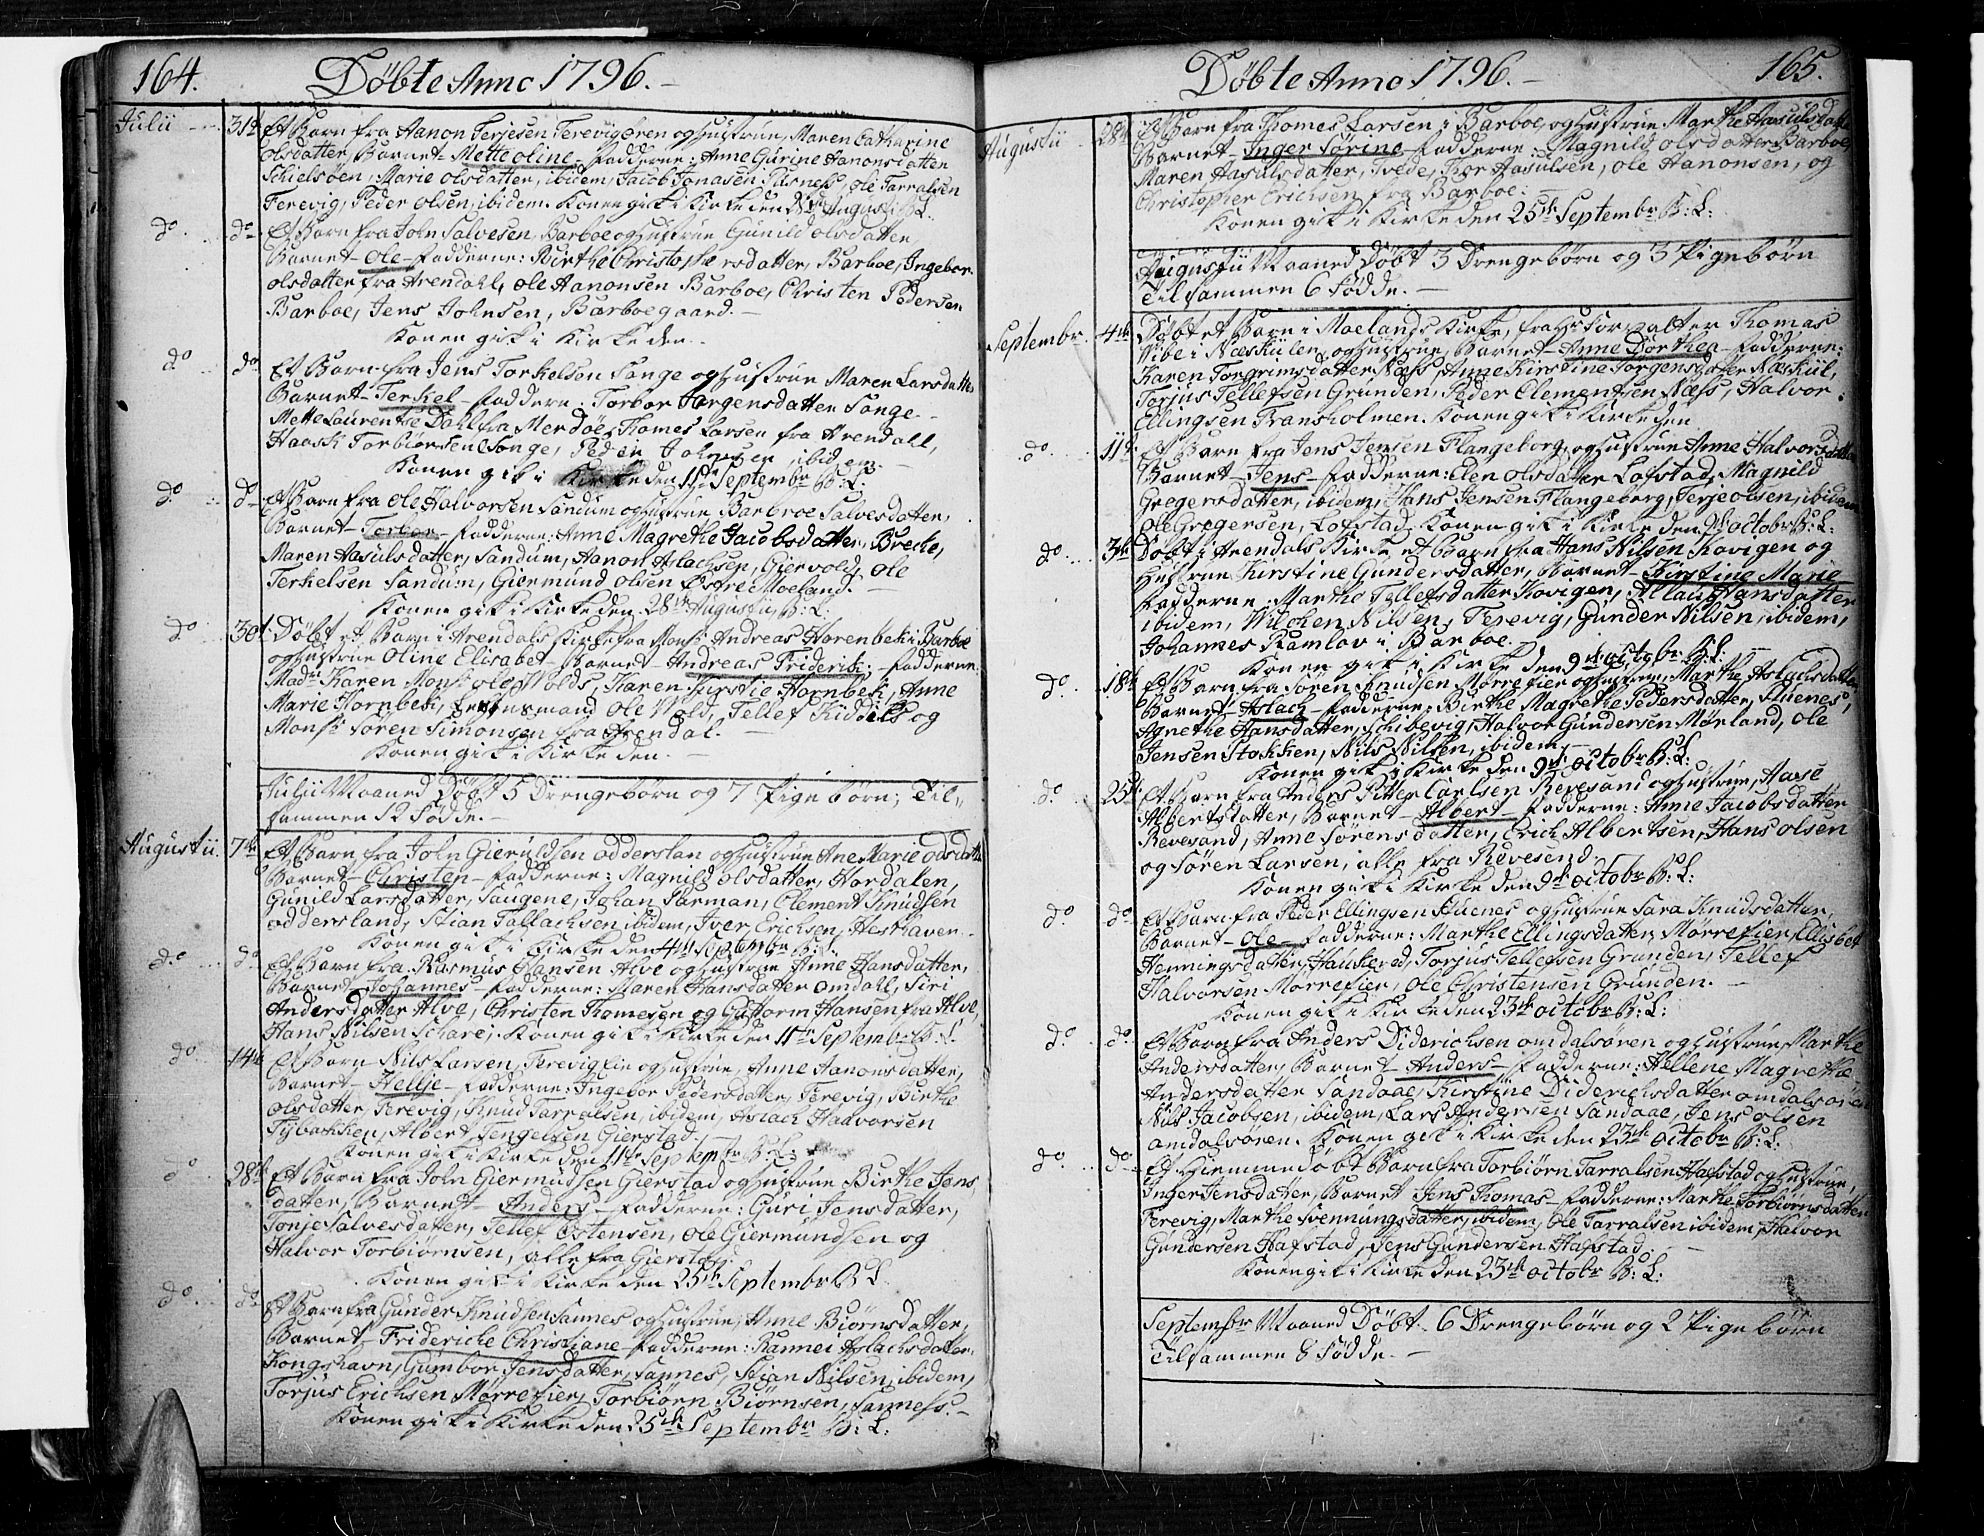 164.
Döbte Anno 1796.
Julii 31te Et Barn fra Aanon Terjesen Terevigøren og Hustrue, Maren Catharine
Olsdatter, Barnet Mette Oline, Fadderne: Anne Gurine Aanonsdatter
Schielsøen, Marie Olsdatter, ibidem, Jacob Jonasen Pusness, Ole Tarralsen
Terevig, Peder Olsen, ibidem. Konen gik i Kirke den Augusti B:L:
do do Et Barn fra John Salvesen, Barboe og Hustrue Gunild Olsdatter
Barnet Ole Fadderne: Birthe Christophersdatter, Barboe, Ingebor
Olsdatter fra Arendahl, Ole Aanonsen Barboe, Christen Pedersen
Barboe, Jens Johnsen, Barboegaard.
Konen gik i Kirke den
do do Et Barn fra Jens Torkelsen Songe og Hustrue Maren Larsdatter
Barnet Terkel Faddern: Torbor Jørgensdatter Songe
Mette Laurentse Dahl fra Merdoe, Thomes Larsen fra Arendall,
Haagk Torbiørsen Songe, Peder Johnsen ibidem.
Konen gik i Kirke den 11te Septembr B:L:
do do Et Barn fra Ole Halvorsen Sandum og Hustrue Barbroe Salvesdatter,
Barnet Torbor Fadderne: Anne Magrethe Jacobsdatter, Brecke,
Maren Aasulsdatter, Sandum, Aanon Aslachsen, Giervold, Ole
Terkelsen Sandum, Giermund Olsen Østre Moeland.
Konen gik i Kirke den 28te Augustii, B:L:
do 30te Döbt et Barn i Arendals Kirke fra Monsr Andreas Horenbek i Barboe
og Hustrue Oline Elisabet Barnet Andreas Friderik: Fadderne:
Madm Karen Monsr Ole Wolds, Karen Kirstie Hornbek, Anne
Marie Hornbek, Ole Wold, Tellef Kiddels og
Monsr Sören Simonsen fra Arendal.
Konen gik i Kirke den
Julii Maaned Döbt 5 Drengebörn og 7 Pigebörn; Til,,
sammen 12 Födde.
Augustii 7de Et Barn fra John Gieruldsen Odderslan og Hustrue Ane Marie Odsdatter
Barnet Christen Fadderne: Magnild Olsdatter, Hordalen,
Gunild Larsdatter, Saugene, Johan Parman, Clement Knudsen
Oddersland, Stian Tallachsen ibidem, Iver Erichsen, Hesthaven
Konen gik i Kirke den 4de Septembr B:L:
do do Et Barn fra Rasmus Hansen Alve og Hustrue Anne Hansdatter,
Barnet Johannes Fadderne: Maren Hansdatter Omdahl, Siri
Andersdatter Alve, Christen Thomesen og Guttorm Hansen fra Alve,
Hans Nilsen Scharei. Konen gik i Kirke den 11te Septembr B:L:
do 14de Et Barn Nils Larsen, Terevig og Hustrue, Anne Aanonsdatter,
Barnet Hellje Fadderne: Ingebor Pedersdatter, Terevig, Birthe
Olsdatter, Terevig, Knud Tarralsen, ibidem, Aslach Halvorsen
Tybakken, Albert Tengelsen Gierstad.
Konen gik i Kirke den 11te Septembr B:L:
do 28de Et Barn fra John Giermudsen Gierstad og Hustrue Birthe Jens
datter, Barnet Anders Fadderne: Guri Jensdatter,
Tonje Salvesdatter, Tellef Ostensen, Ole Giermundsen og
Halvor Torbiørnsen, alle fra Gierstad.
Konen gik i Kirke den 25te Septembr B:L:
do do Et Barn fra Gunder Knudsen Sannes og Hustrue, Anne Biørnsdatter,
Barnet Fridericke Christiane Fadderne: Rannei Aslachsdatter
Kongshavn, Gumbor Jensdatter, Sannes, Stian Nilsen, ibidem,
Torjus Erichsen Mørrefier, Torbiørn Biørnsen, Sanness.
Konen gik i Kirke den 25de Septembr B:L:
165.
Döbte Anno 1796.
Augustii 28de Et Barn fra Thomes Larsen i Barboe, og Hustrue Marthe Aasulsdatter
Barnet Inger Sørine Fadderne: Magnild Olsdatter Barboe,
Maren Aasulsdatter, Tvede, Thor Aasulsen, Ole Aanonsen, og
Christopher Erichsen fra Barboe.
Konen gik i Kirke den 25de Septembr B:L:
Augustii Maaned Döbt 3 Drengebörn og 3 Pigebörn
Tilsammen 6 Födde.
Septembr. 4de Döbt et Barn i Moelands Kirke, fra Hr Forvalter Thomas
Vibe i Næskiilen, og Hustrue, Barnet Anne Dorthea Fadderne:
Karen Torgrimsdatter Næss, Anne Kirstine Jørgensdatter Næskiil,
Torjus Tellefsen Grunden, Peder Clementsen Næss, Halvor
Ellingsen Fransholmen. Konen gik i Kirke den
do 11te Et Barn fra Jens Jensen Flangeborg og Hustrue Anne Halvorsdatter
Barnet Jens Fadderne: Elen Olsdatter Løfstad, Magnild
Gregersdatter, ibidem, Hans Jensen Flangeborg, Terje Olsen, ibidem
Ole Gregersen, Løfstad. Konen gik i Kirke den 9de Octobr B:L:
do 3de Döbt i Arendals Kirke et Barn fra Hans Nilsen Kovigen og
Hustrue Kirstine Gundersdatter, Barnet Kirstine Marie
Fadderne: Marthe Tellefsdatter Kovigen, Allau Hansdatter
ibidem, Wilchen Nilsen, Terevig, Gunder Nilsen, ibidem,
Johannes Ramlov i Barboe.
Konen gik i Kirke den 9de Octobr B:L:
do 18de Et Barn fra Sören Knudsen Mørrefier og Hustrue, Marthe Aslachsdatter
Barnet Aslach Fadderne: Birthe Magrethe Pedersdatter, Stuenes,
Agnethe Hansdatter, Schibevig, Halvor Gundersen Mørland, Ole
Jensen Stokken, Nils Nilsen, ibidem,
Konen gik i Kirke den 9de Octobr B:L:
do 25de Et Barn fra Anders Pitter Carlsen Revesand og Hustrue, Aase
Albertsdatter, Barnet Albert Fadderne: Anne Jacobsdatter
Revesand, Anne Sørensdatter, Erich Albertsen, Hans Olsen
og Sören Larsen, alle fra Revesend.
Konen gik i Kirke den 9de Octobr B:L:
do do Et Barn fra Peder Ellingsen Stuenes og Hustrue Sara Knudsdatter,
Barnet Ole Fadderne: Marthe Ellingsdatter Mørrefier, Ellisbet
Henningsdatter, Haukered, Torjus Tellefsen Grunden, Tellef
Halvorsen Mørrefier, Ole Christensen Grunden.
Konen gik i Kirke den 23de Octobr B:L:
do do Et Barn fra Anders Diderichsen Omdalsøren og Hustrue, Marthe
Andersdatter, Barnet Anders Fadderne: Hellene Magrethe
Andersdatter Sandaae, Kirstine Diderichsdatter Omdalsøren
Nils Jacobsen, ibidem, Lars Andersen Sandaae, Jens Olsen
Omdalsören. Konen gik i Kirke den 23de Octobr B:L:
do do Et Hiemmedöbt Barn fra Torbiørn Tarralsen Hafstad og Hustrue,
Inger Jensdatter, Barnet Jens Thomas Fadderne: Marthe Torbiørnsdatter
Terevig, Marthe Svennungsdatter, ibidem, Ole Tarralsen ibidem, Halvor
Gundersen Hafstad, Jens Gundersen Hafstad,
Konen gik i Kirke den 23de Octobr B:L:
Septembr Maaned Döbt 6 Drengebörn og 2 Pigebörn
Tilsammen 8 Födde.